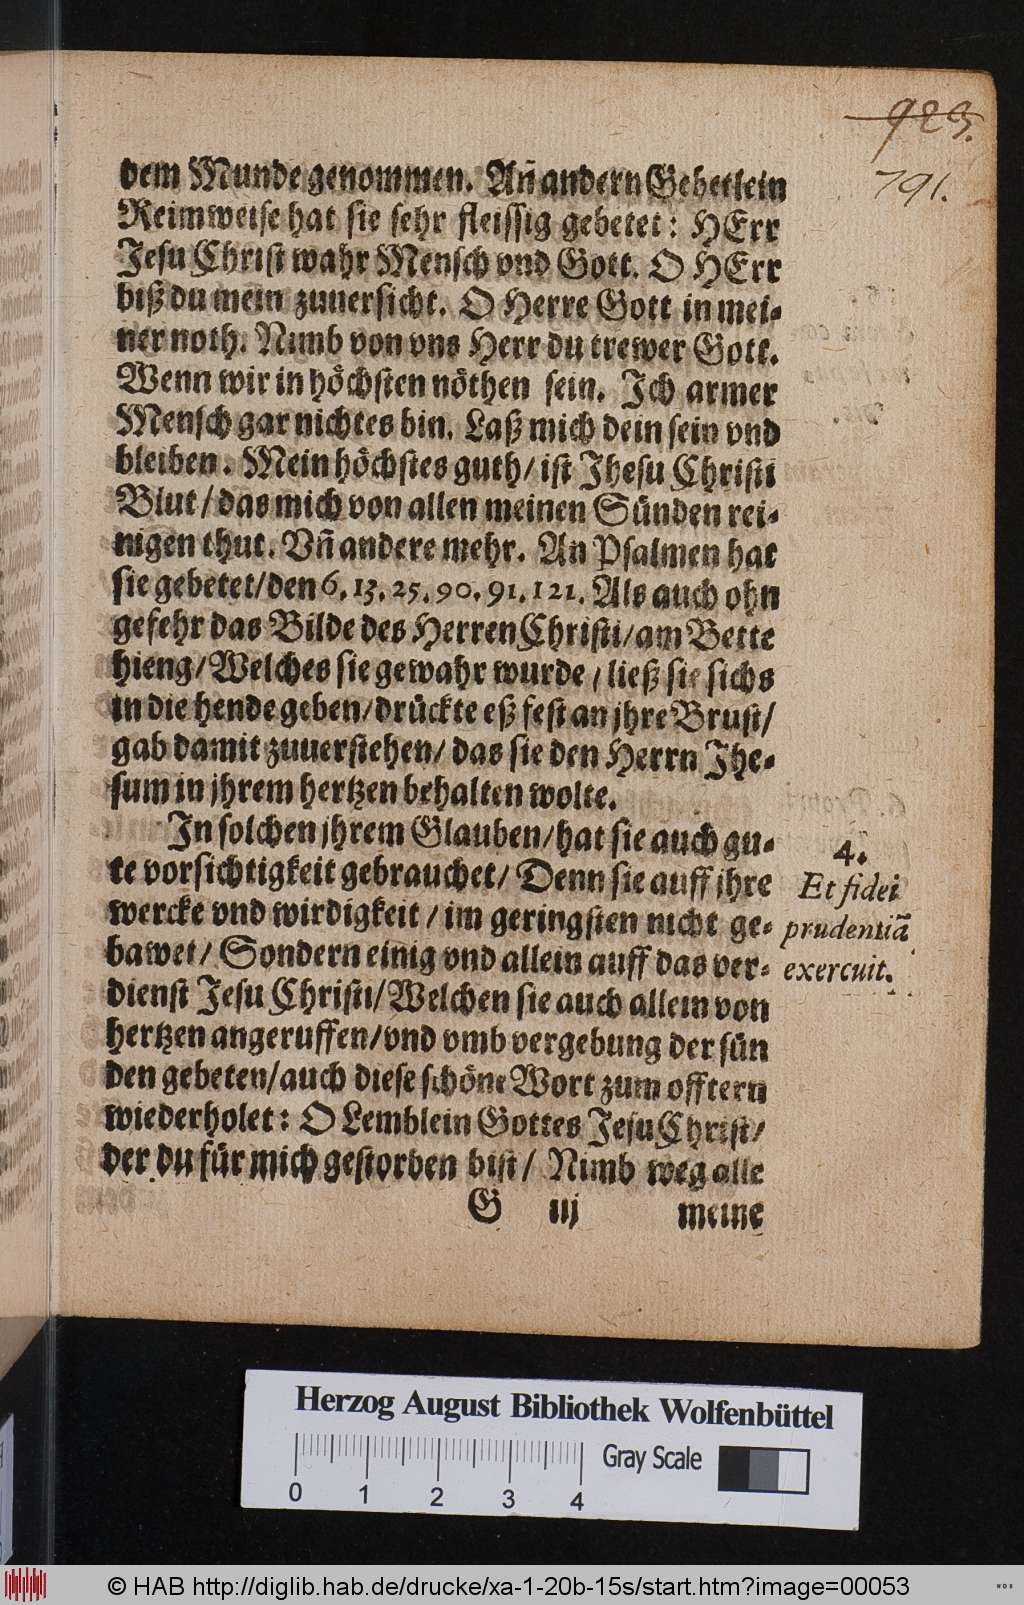 923.
791.
dem Munde genommen. Añ andern Gebetlein
Reimweise hat sie sehr fleissig gebetet: HErr
Jesu Christ wahr Mensch vnd Gott. O HErr
biß du mein zuuersicht. O Herre Gott in mei-
ner noth. Nimb von vns Herr du trewer Gott.
Wenn wir in höchsten nöthen sein. Ich armer
Mensch gar nichtes bin. Laß mich dein sein vnd
bleiben. Mein höchstes guth/ ist Jhesu Christi
Blut/ das mich von allen meinen Sünden rei-
nigen thut. Vñ andere mehr. An Psalmen hat
sie gebetet/den 6. 13. 25. 90. 91. 121. Als auch ohn
gefehr das Bilde des Herren Christi/am Bette
hieng/Welches sie gewahr wurde/ ließ sie sichs
in die hende geben/drückte eß fest an jhre Brust/
gab damit zuuerstehen/ das sie den Herrn Jhe-
sum in jhrem hertzen behalten wolte.
In solchen jhrem Glauben/hat sie auch gu-
te vorsichtigkeit gebrauchet/ Denn sie auff jhre
wercke vnd wirdigkeit/ im geringsten nicht ge-
bawet/ Sondern einig vnd allein auff das ver-
dienst Jesu Christi/Welchen sie auch allein von
hertzen angeruffen/vnd vmb vergebung der sün
den gebeten/auch diese schöne Wort zum offtern
wiederholet: O Lemblein Gottes Jesu Christ/
der du für mich gestorben bist/ Nimb weg alle
G iij meine
4.
Et fidei
prudentiã
exercuit.
Herzog August Bibliothek Wolfenbüttel
0 1 2 3 4 Gray Scale
© HAB http://diglib.hab.de/drucke/xa-1-20b-15s/start.htm?image=00053